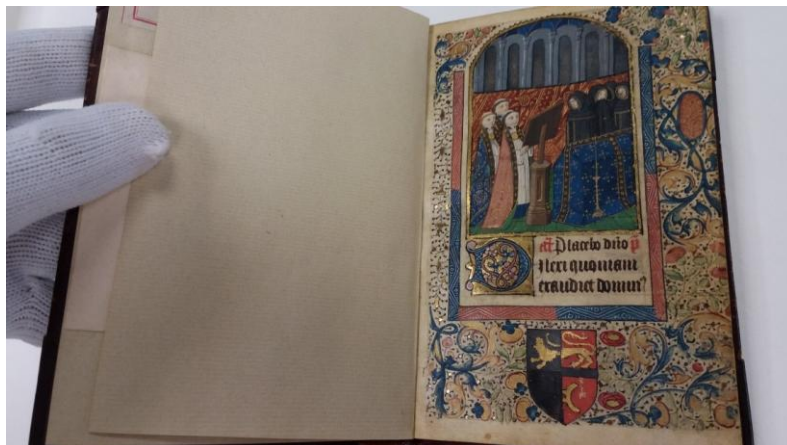 añ Placebo dño p̄
Ilexi quoniam
exaudiet domin⁹